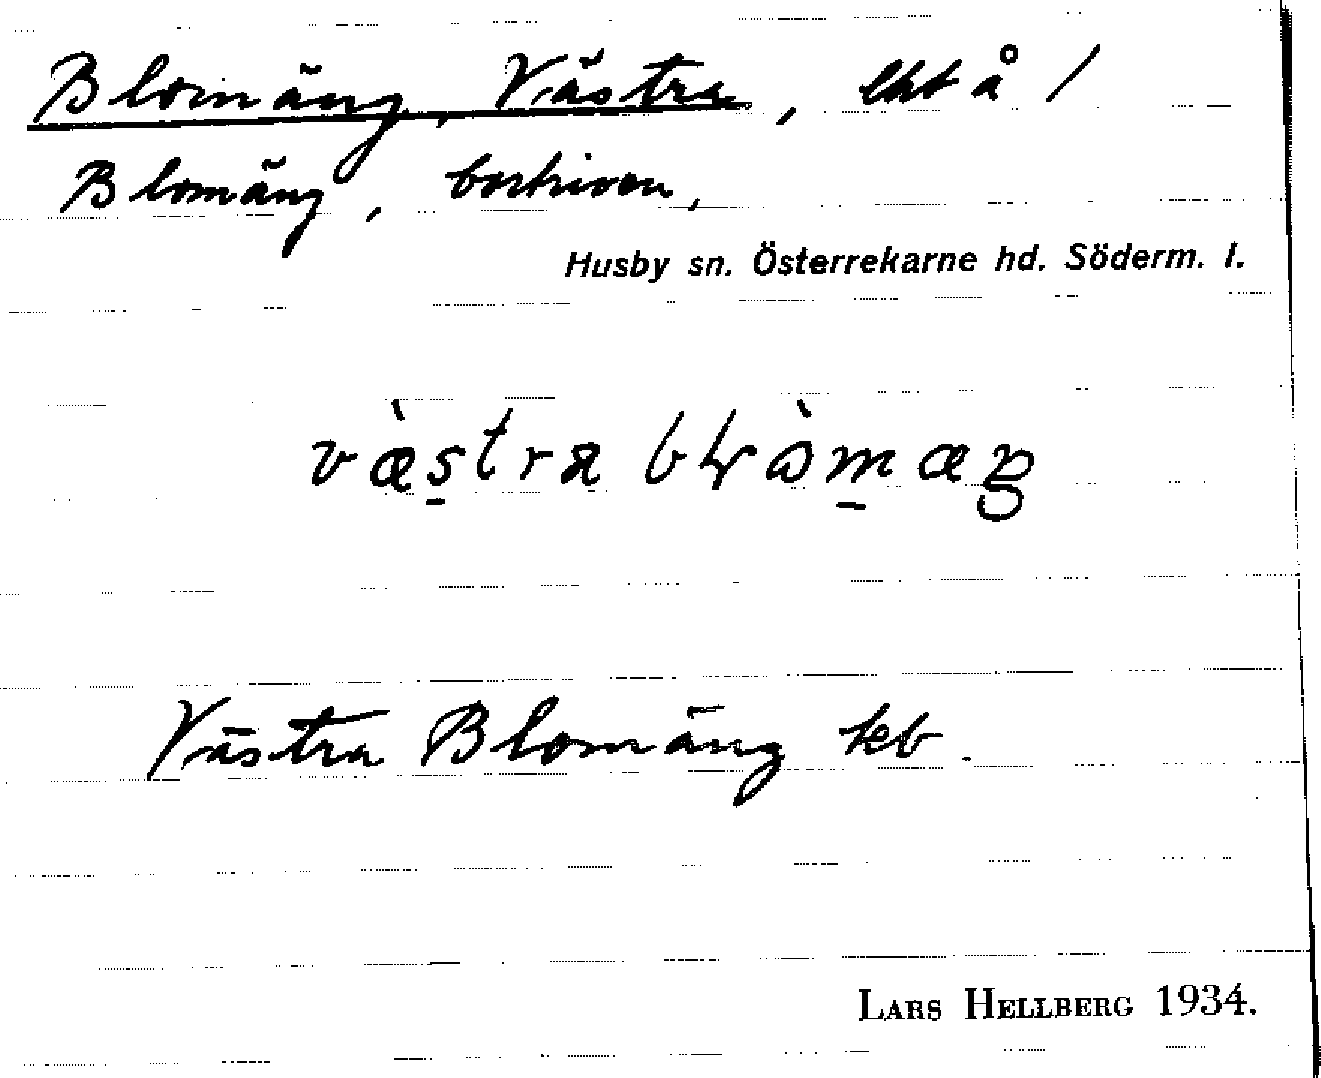 Blomäng, Västra, lht å /
Blomäng, bortriven,
Husby sn. Österrekarne hd. Söderm. l.
västra
Västra Blomäng kb.
LARS HELLBERG 1934.